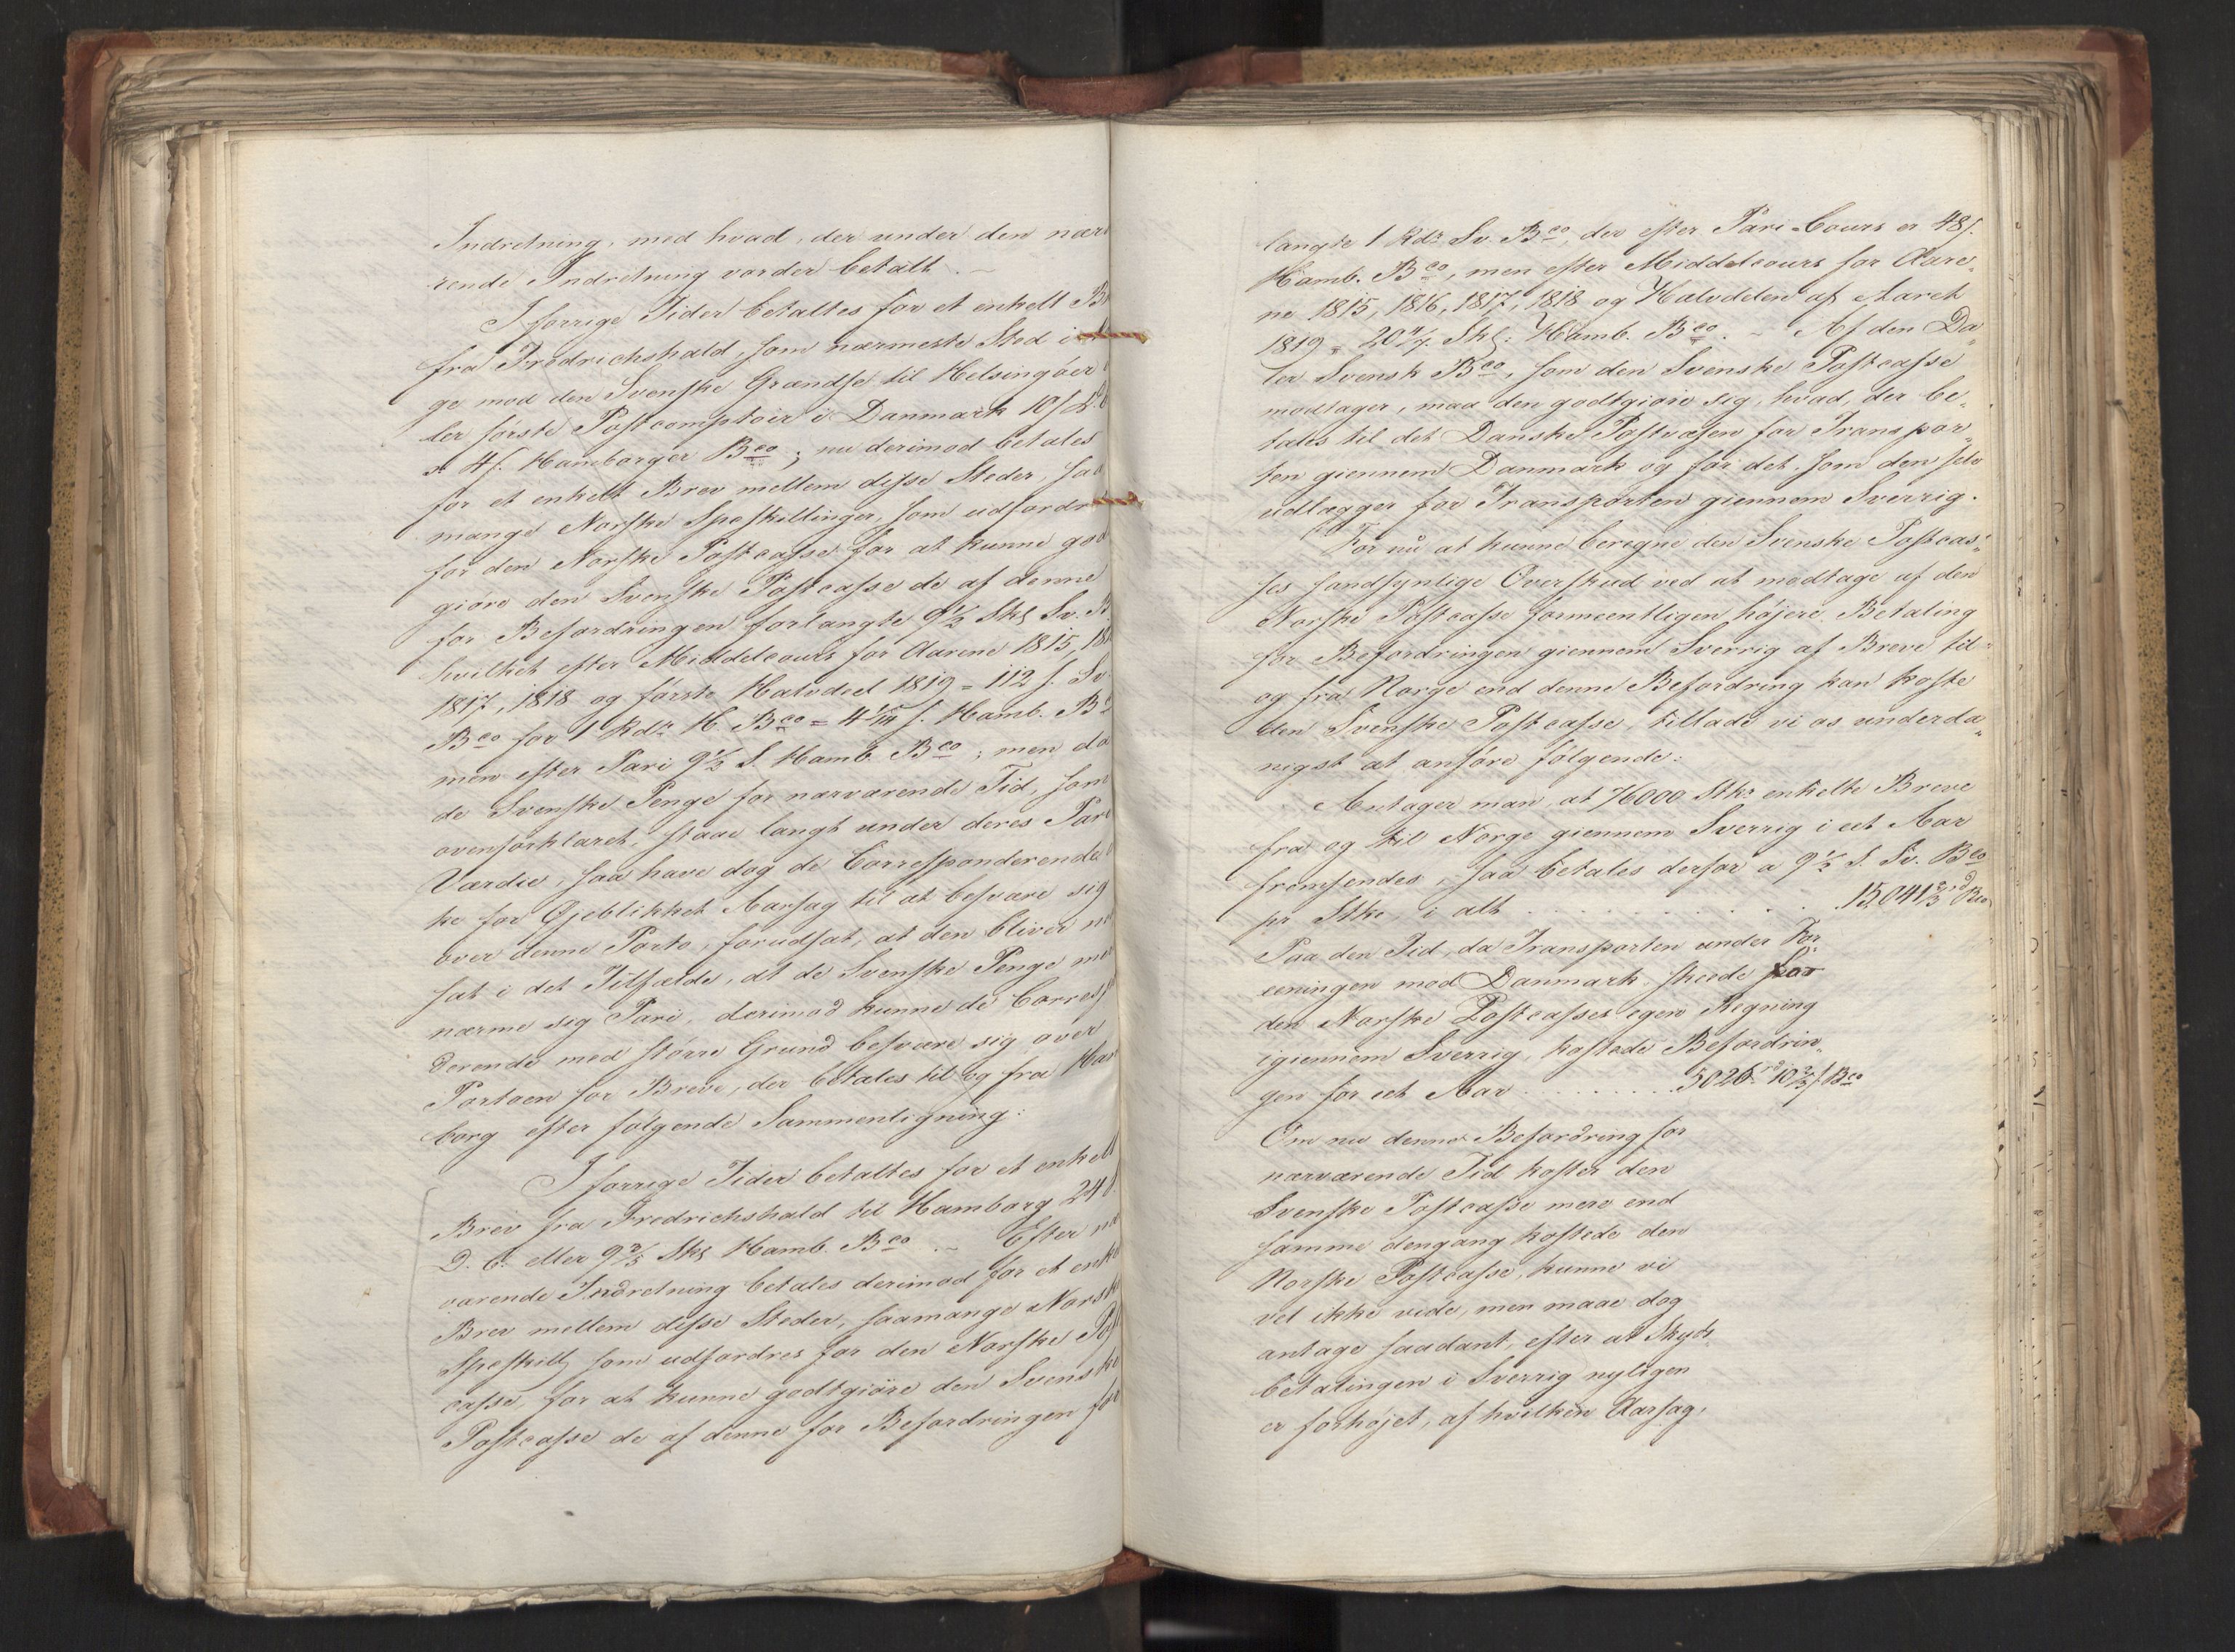 Indretning, med hvad, der under den nær
rende Indretning vorder betalt. ~
I forrige Tider betaltes for et enkelt Br
fra Fredrichshald, som nærmeste Sted i
ge mod den Svenske Grændse til Helsingøer
ler første Postcomptoir i Danmark 10 s.
a 4 s. Hamborger Bco; nu derimod betales
for et enkelt Brev mellem disse Steder, saa
mange Norske Speskillinger, som udfordr
for den Norske Postcasse for at kunne god
giøre den Svenske Postcasse de af denne
for Befordringen forlangte 9½ Sks Sv. B
hvilket efter Middelcours for Aarene 1815, 181
1817, 1818 og første Halvdeel 1819 = 112 s. Sv.
Bco for 1 Rdr H. Bco = 4 1/14 s. Hamb. Bc
men efter Pari 9½ S. Hamb. Bco; men da
de Svenske Penge for nærværende Tid, som
ovenforklaret, staae langt under deres Pari
Værdie, saa have dog de Corresponderende
ke for Øjeblikket Aarsag til at besvære sig
over denne Porto, forudsat, at den bliver ne
sat i det Tilfælde, at de Svenske Penge me
nærme sig Pari, derimod kunne de Corresp
derende med større Grund besvære sig over
Portoen for Breve, der betales til og fra Ham
borg efter følgende Sammenligning:
I forrige Tider betaltes for et enkelt
Brev fra Fredrichshald til Hamborg 24 s.
D. C. eller 9 3/5 Sks Hamb. Bco. ~ Efter næ
værende Indretning betales derimod for et enke
Brev mellem disse Steder, saamange Norske
Speskill, som udfordres for den Norske Post
casse, for at kunne godtgiøre den Svenske
Postcasse de af denne for Befordringen for
langte 1 Rdr Sv. Bco, der efter Pari-Cours er 48 s.
Hamb. Bco, men efter Middelcours for Aare„
ne 1815, 1816, 1817, 1818 og Halvdelen af Aaret
1819 = 20 4/7 Sks. Hamb. Bco. ~ Af den Da„
ler Svensk Bco, som den Svenske Postcasse
modtager, maa den godtgiøre sig, hvad, der be„
tales til det Danske Postvæsen for Transpor„
ten giennem Danmark og for det, som den selv
udlægger for Transporten giennem Sverrig.
For nu at kunne beregne den Svenske Postcas„
ses sandsynlige Overskud ved at modtage af den
Norske Postcasse formeentligen højere Betaling
for Befordringen giennem Sverrig af Breve til
og fra Norge end denne Befordring kan koste
den Svenske Postcasse, tillade vi os underda„
nigst at anføre følgende:
Antager man, at 76000 Stkr enkelte Breve
fra og til Norge giennem Sverrig i eet Aar
fremsendes, saa betales derfor a 9½ S. Sv. Bco
pr. Stke, i alt . . . . . . . . . . 15,041 2/3 rd Bco
Paa den Tid, da Transporten under For„
eeningen med Danmark skeede for
den Norske Postcasses egen Regning
igiennem Sverrig, kostede Befordrin„
gen for eet Aar . . . . . . . . 5026 rd 10 2/3 s. Bco
Om nu denne Befordring for
nærværende Tid koster den
Svenske Postcasse mere end
samme dengang kostede den
Norske Postcasse, kunne vi
vel ikke vide, men maae dog
antage saadant, efter at Skyds
betalingen i Sverrig nyligen
er forhøjet, af hvilken Aarsag,